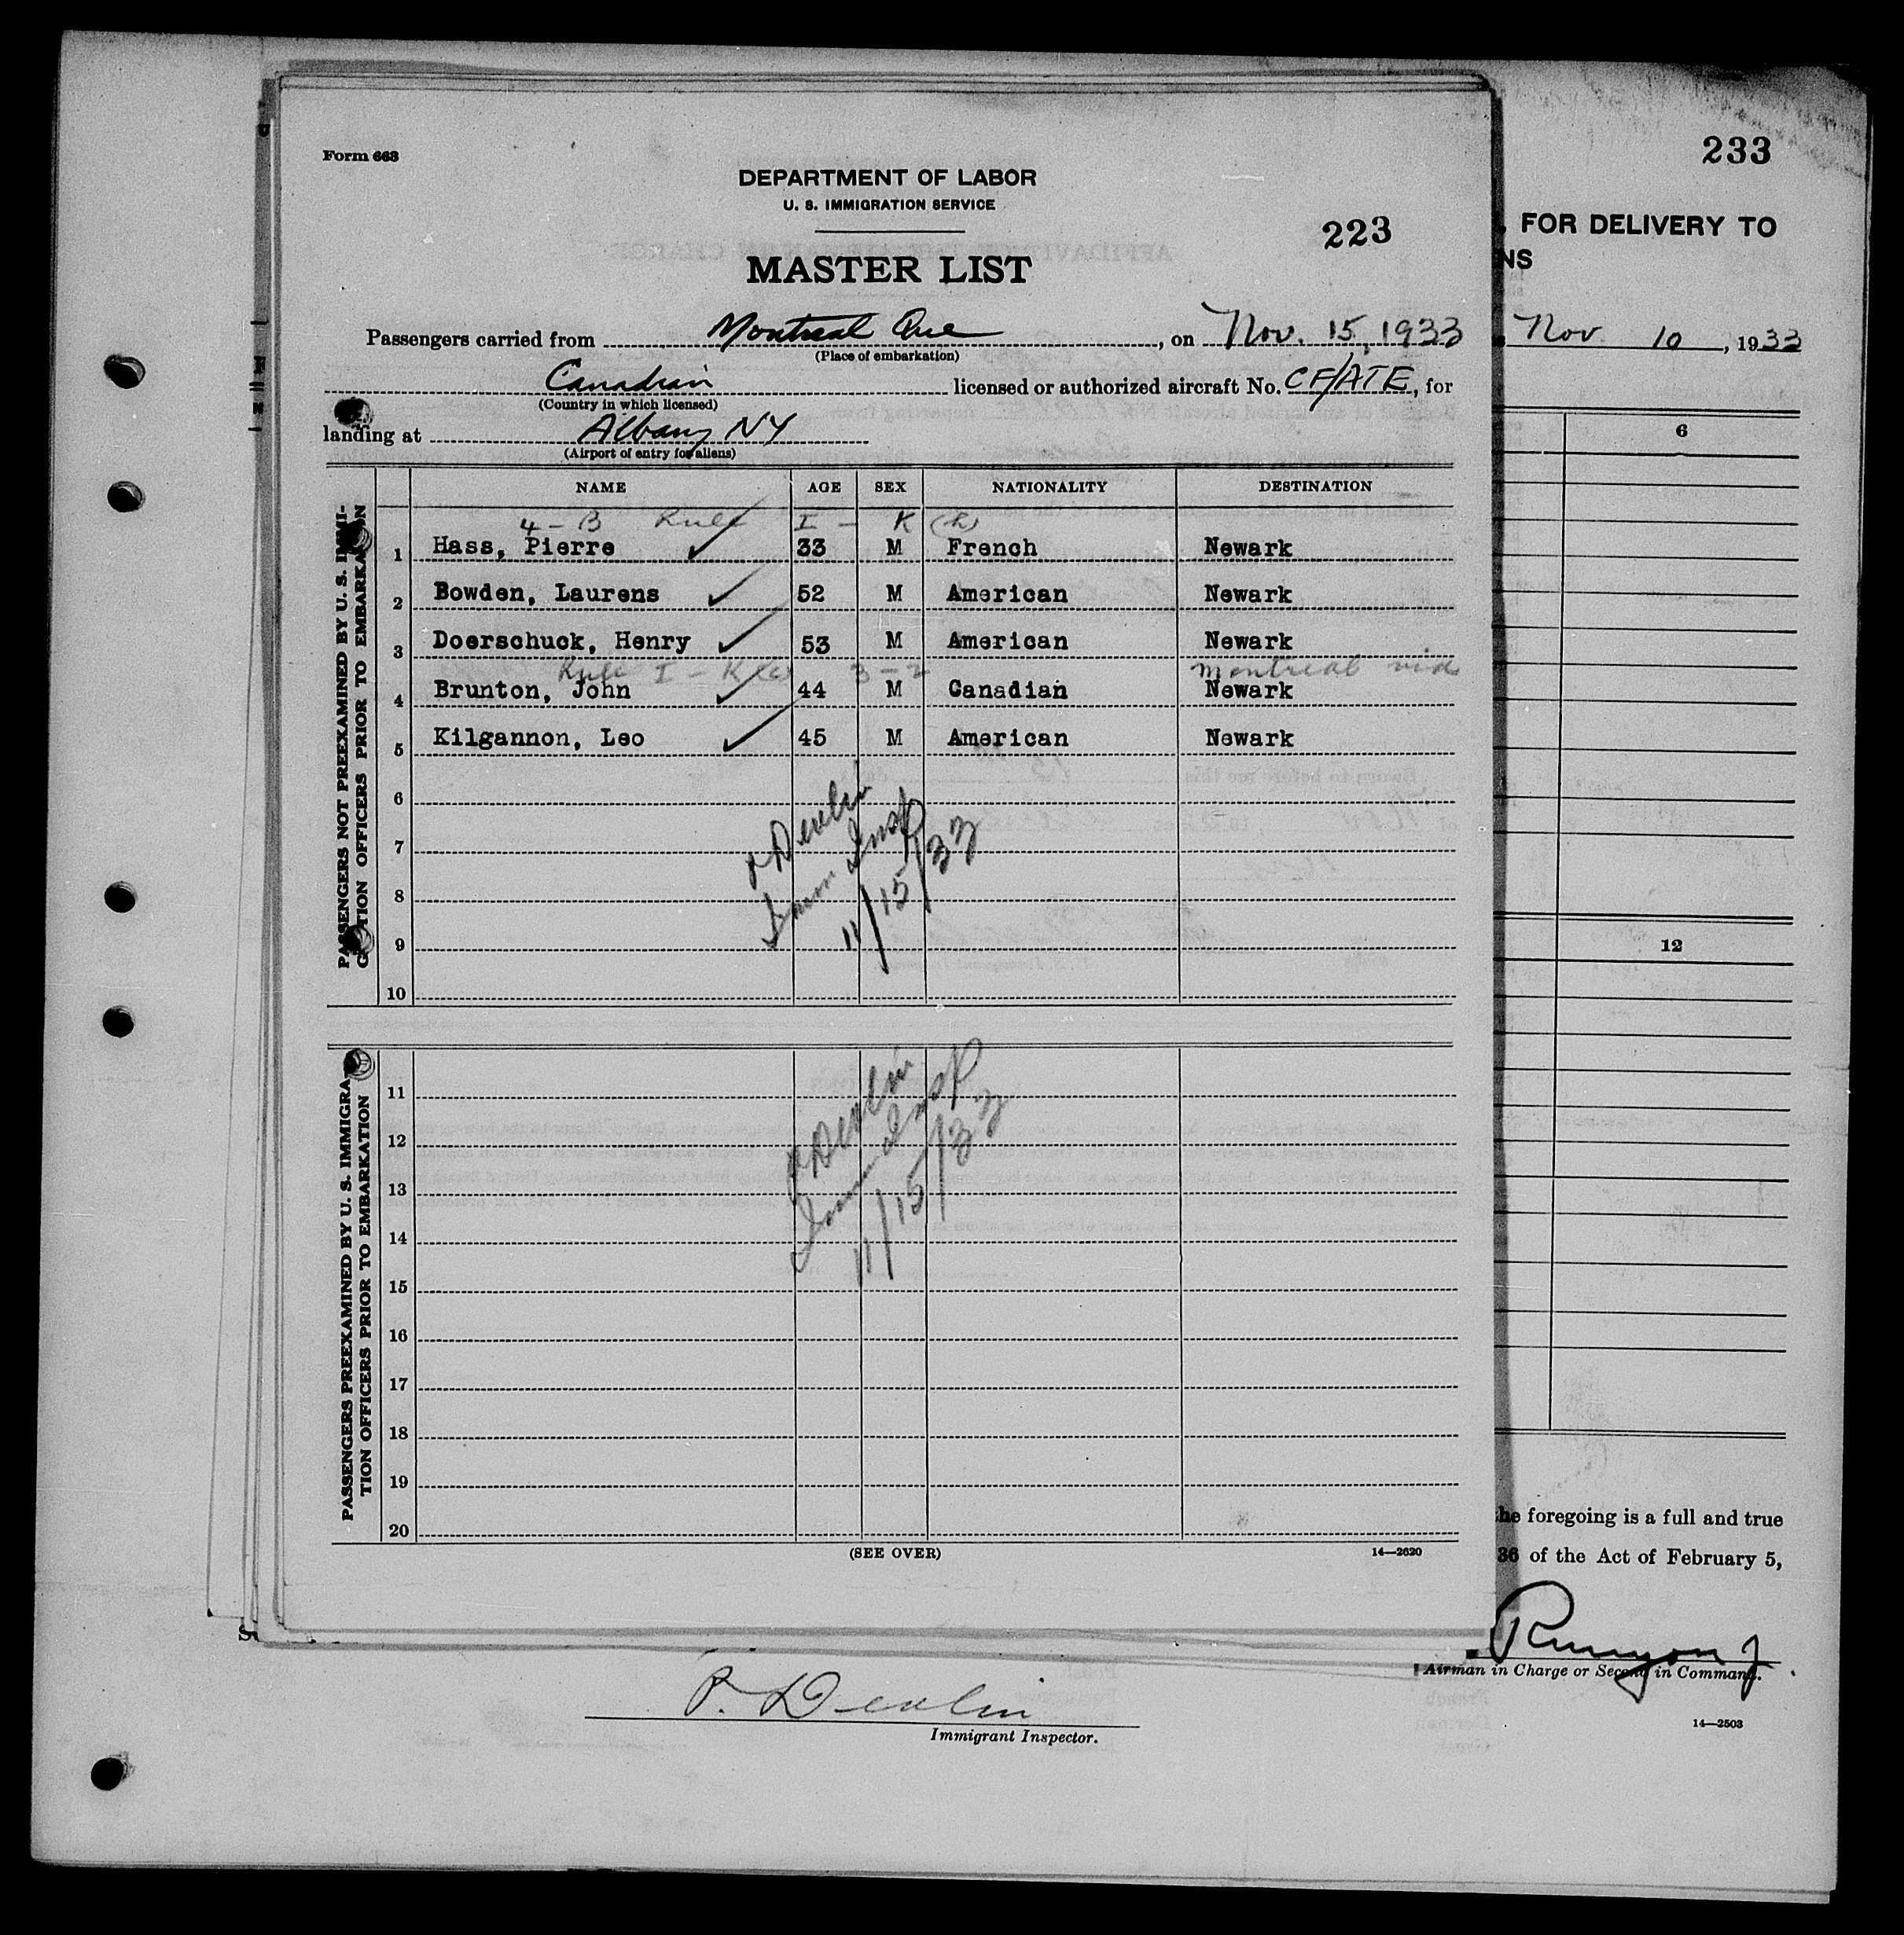 Form 663
DEPARTMENT OF LABOR
U. S. IMMIGRATION SERVICE
223
MASTER LIST
Passengers carried from Montreal Que, on Nov. 15, 1933
(Place of embarkation)
Canadian licensed or authorized aircraft No. CF/ATE, for
(Country in which licensed)
landing at Albany NY
(Airport of entry for aliens)
NAME AGE SEX NATIONALITY DESTINATION
PASSENGERS NOT PREEXAMINED BY U. S. IMMI-
GRATION OFFICERS PRIOR TO EMBARKATION
4 - B Rule I - K (h)
1 Hass, Pierre 33 M French Newark
2 Bowden, Laurens 52 M American Newark
3 Doerschuck, Henry 53 M American Newark
Rule I - K 3 - 2 Montreal via
4 Brunton, John 44 M Canadian Newark
5 Kilgannon, Leo 45 M American Newark
6
7
8
9
10
P Devlin
Imm Insp
11/15/33
PASSENGERS PREEXAMINED BY U. S. IMMIGRA-
TION OFFICERS PRIOR TO EMBARKATION
11
12
13
14
15
16
17
18
19
20
P Devlin
Imm Insp
11/15/33
(SEE OVER)
14—2620
233
FOR DELIVERY TO
NS
Nov 10, 1933
6
12
he foregoing is a full and true
36 of the Act of February 5,
Runyon J
Airman in Charge or Second in Command.
14—2503
P. Devlin
Immigrant Inspector.